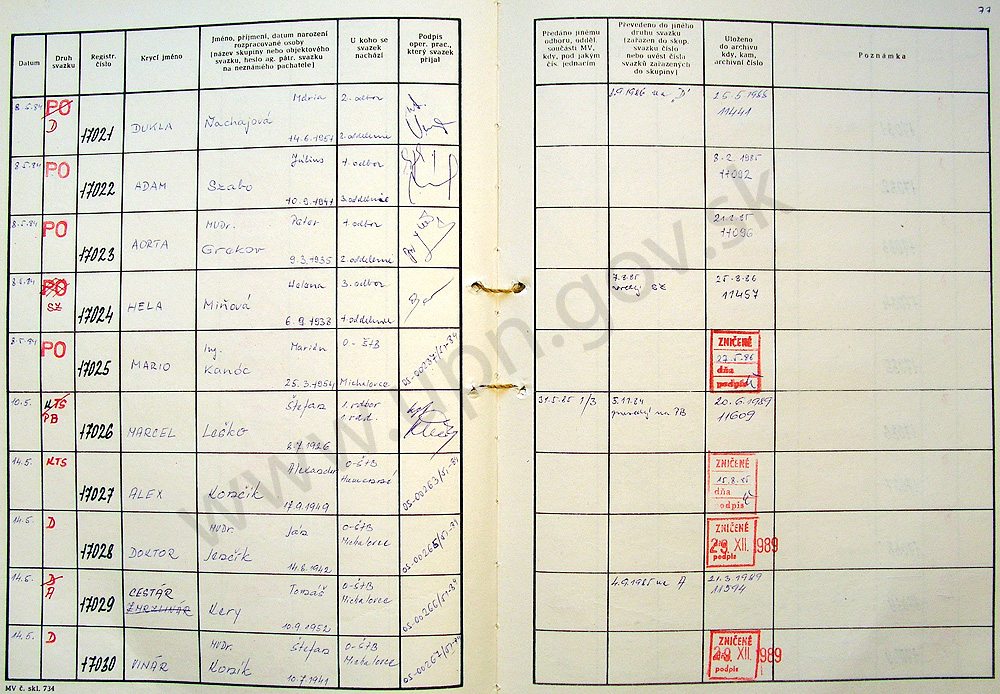 77
Datum
Druh svazku
Registr. číslo
Krycí jméno
Jméno, příjmení, datum narození
rozpracované osoby
(název skupiny nebo objektového
svazku, heslo ag. pátr. svazku
na neznámého pachatele)
U koho se
svazek
nachází
Podpis
oper. prac.,
který svazek
přijal
Předáno jinému
odboru, odděl.
součásti MV,
kdy, pod jakým
čís. jednacím
Převedeno do jiného
druhu svazku
(zařazen do skup.
svazku číslo
nebo uvést čísla
svazků zařazených
do skupiny)
Uloženo
do archivu
kdy, kam,
archivní číslo
Poznámka
8.5.84 PO D 17021 DUKLA Mária Nachajová 14.6.1957 2. odbor 2. oddelenie
1.9.1986 na "D" 25.5.1988 11441
8.5.84 PO 17022 ADAM Július Szabo 10.9.1947 1. odbor 3. oddelenie
8.2.1985 11092
8.5.84 PO 17023 AORTA MUDr. Peter Grekov 9.3.1935 1. odbor 2. oddelenie
11096
PO SZ 17024 HELA Helena Miňová 6.9.1938 3. odbor 1. oddelenie
SZ 25.8.86 11457
8.5.84 PO 17025 MARIO Ing. Marián Kanóc 25.3.1954 O-ŠtB Michalovce
ZNIČENÉ 27.5.86 dňa podpis
10.5. KTS PB 17026 MARCEL Štefan Leško 1. odbor
31.5.85 1/3 5.11.84 na PB 20.6.1989 11609
14.5. KTS 17027 ALEX Alexander 17.9.1949 O-ŠtB
ZNIČENÉ 15.8.85 dňa podpis
14.5. D 17028 DOKTOR MUDr. Ján 14.6.1942 O-ŠtB Michalovce
ZNIČENÉ 29. XII. 1989 podpis
14.5. D A 17029 CESTÁR ZMRZLINÁR Tomáš Kery 10.9.1952 O-ŠtB Michalovce
4.9.1985 na A 21.3.1989 11594
14.5. D 17030 VINÁR MUDr. Štefan 10.7.1941 O-ŠtB Michalovce
ZNIČENÉ 29. XII. 1989 podpis
MV č. skl. 734
www.upn.gov.sk